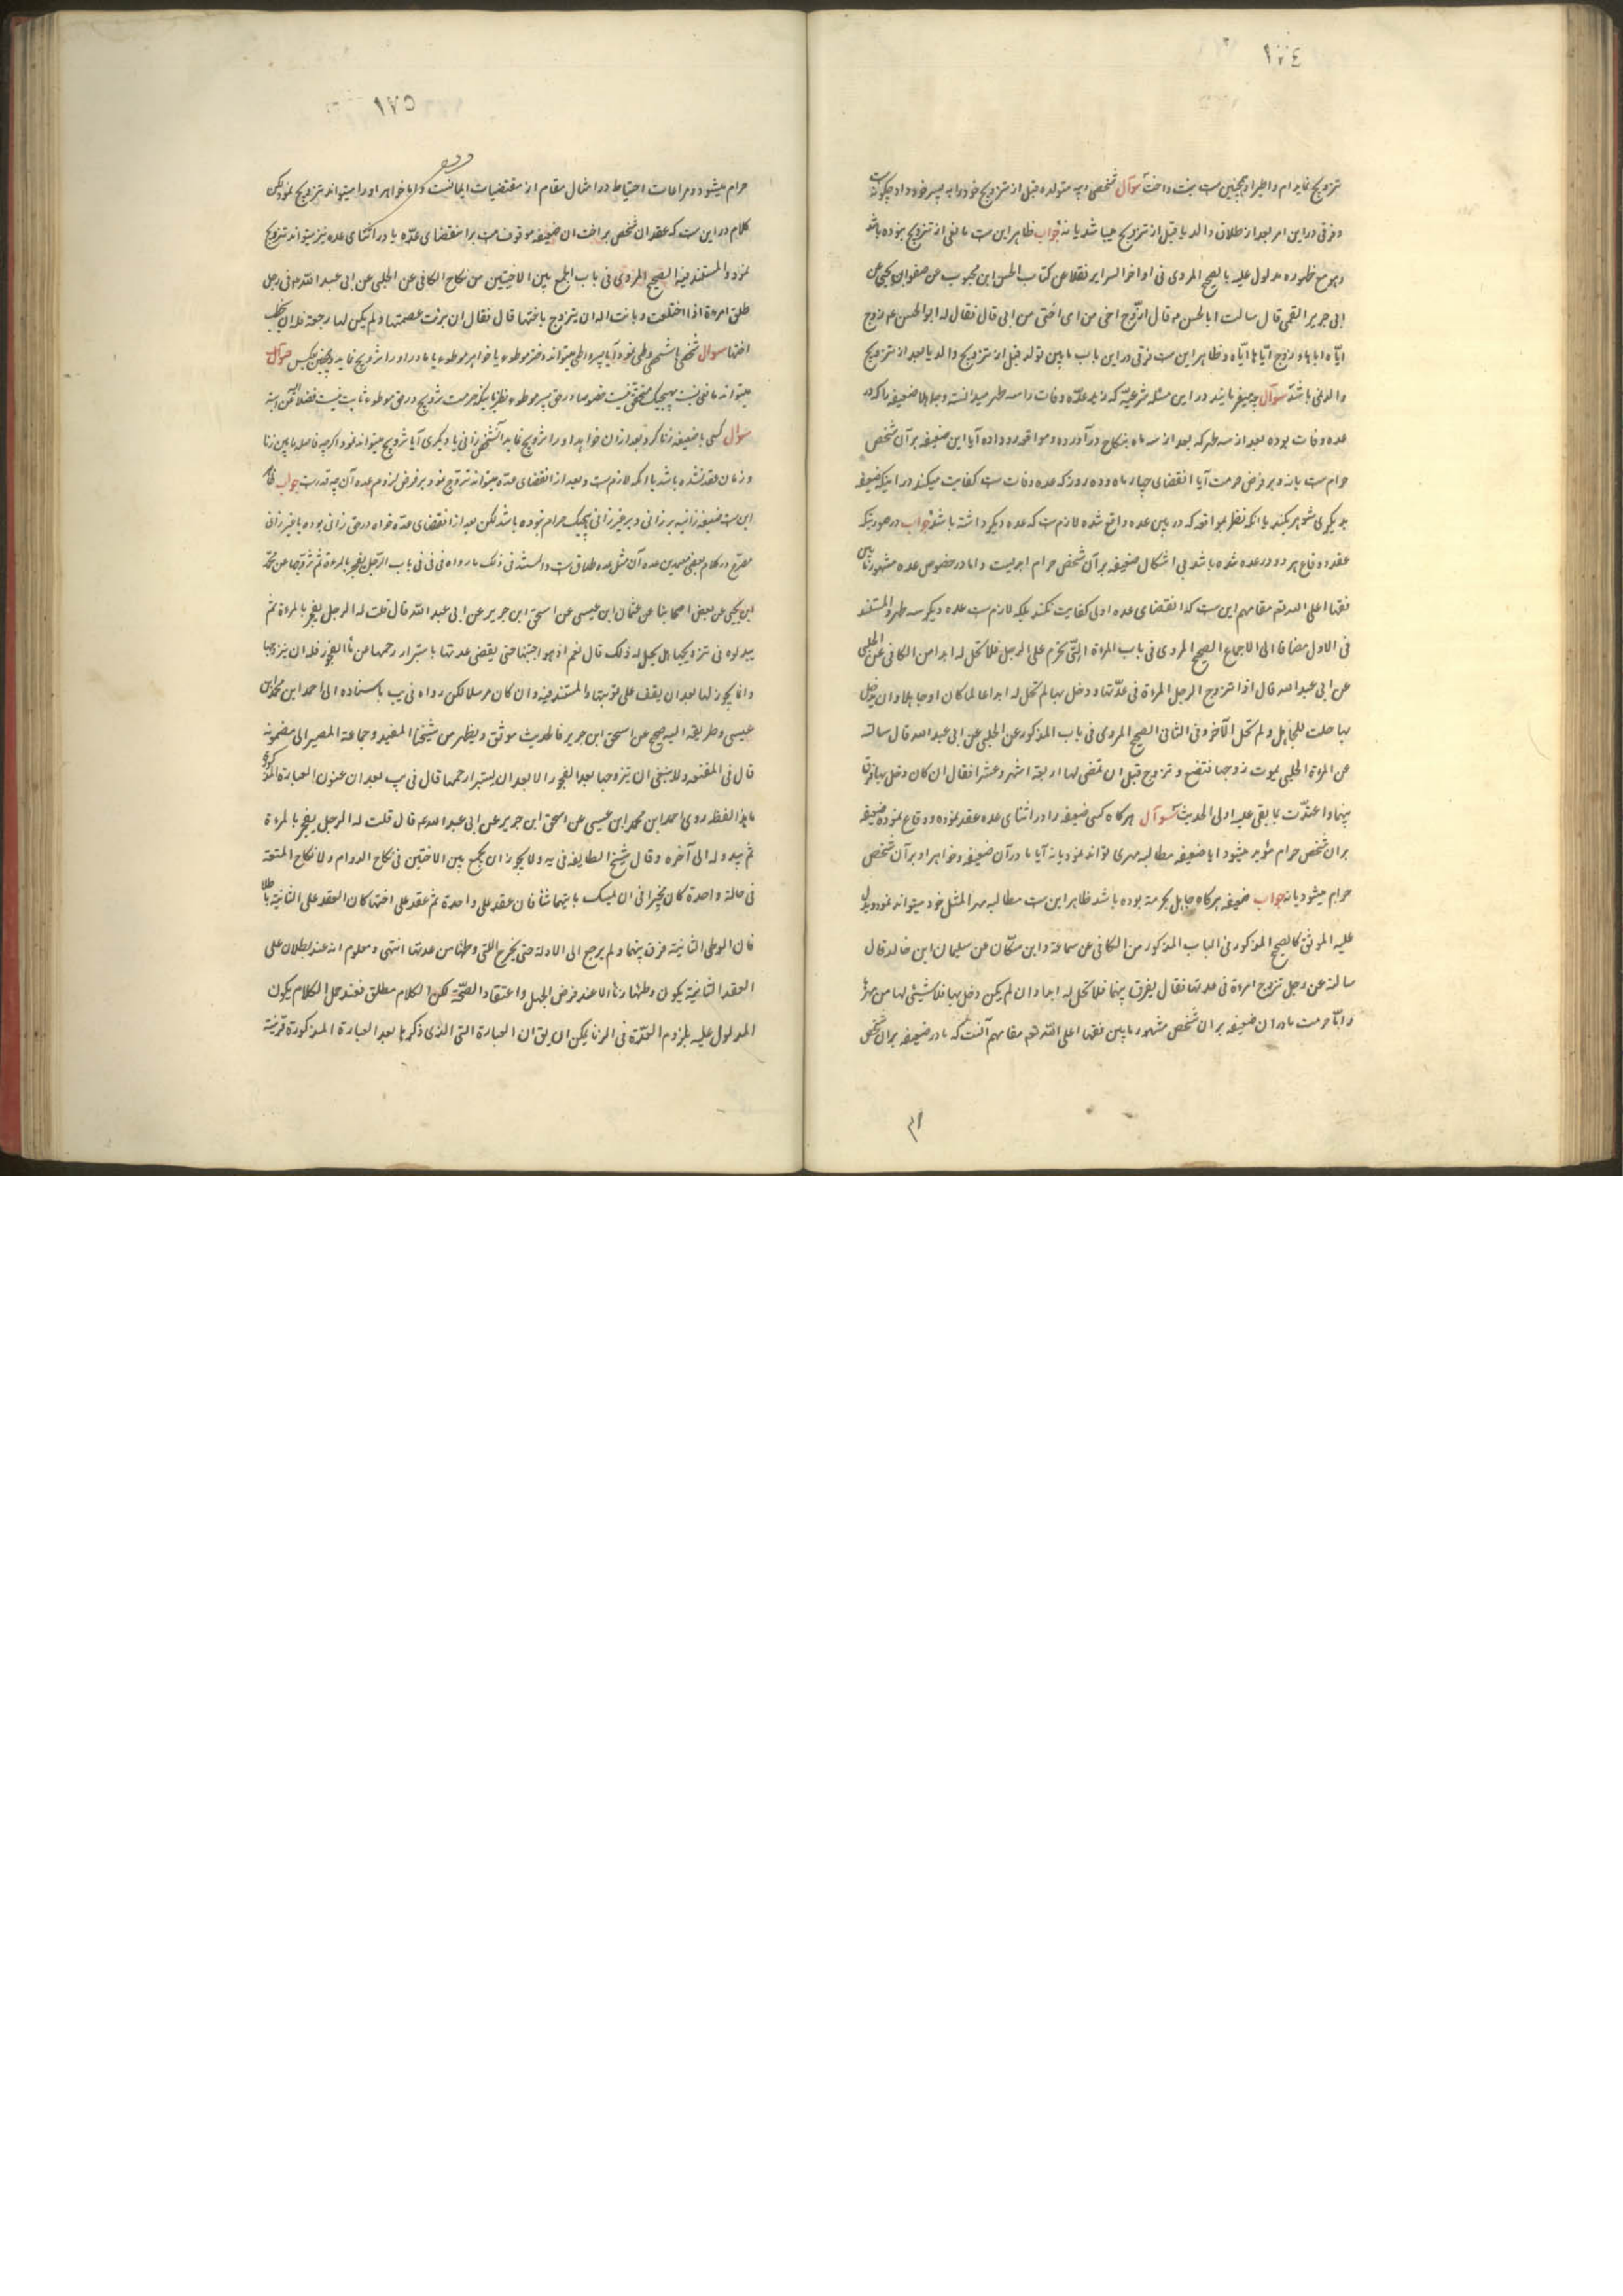 ١٧٤
تزویج نماید ام واطیرا و همچنین است بنت واخت سوآل شخصی دیه متولده قبل از تزویج خود را به پسر خود داد چکونه است
و فرقی در این امر بعد از طلاق والد یا قبل از تزویج میباشد یا نه جواب ظاهر این ست مانعی از تزویج نبوده باشد
و هو مع ظهوره مدلول علیه بالصحیح المروی فی اواخر السرایر نقلا عن کتاب الحسن ابن محبوب عن صفوان بن یحیی عن
ابی جریر القمی قال سالت ابا الحسن ع قال ازوّج اخی من امی اختی من ابی قال فقال له ابو الحسن ع زوج
ایّاه اباها و زوج ایّاها ایّاه و ظاهر این ست فرقی در این باب ما بین تولد قبل از تزویج والد یا بعد از تزویج
والد نمی باشد سوآل چه میفرمایند در این مسئله شرعیّه که زید عدّه وفات را سه طهر میدانسته و جاهلا ضعیفه را که در
عده وفات بوده بعد از سه طهر که بعد از سه ماه بنکاح در آورده و مواقعه رو داده آیا این ضعیفه بر آن شخص
حرام ست یا نه و بر فرض حرمت آیا انقضای چهار ماه و ده روز که عده وفات ست کفایت میکند در اینکه ضعیفه
بدیکری شوهر بکند یا انکه نظر بمواقعه که در بین عده واقع شده لازم ست که عده دیکر داشته باشد جواب در صورتیکه
عقد و وقاع هر دو در عده شده باشد بی اشکال ضعیفه بر آن شخص حرام ابدیست و اما در خصوص عده مشهور ما بین
فقها اعلی الله تع مقامهم این ست که انقضای عده اولی کفایت نکند بلکه لازم ست عده دیکر سه طهر والمستند
فی الاول مضافا الی الاجماع الصحیح المروی فی باب المراة التی تحرم علی الرجل فلا تحل له ابدا من الکافی عن الحلبی
عن ابی عبد الله قال اذا تزوج الرجل المراة فی عدّتها و دخل بها لم تحل له ابدا عالما کان او جاهلا وان لم یدخل
بها حلت للجاهل و لم تحل للآخر وفی الثانی الصحیح المروی فی باب المذکور عن الحلبی عن ابی عبد الله قال سالته
عن المراة الحبلی یموت زوجها فتضع و تزوج قبل ان تمضی لها اربعة اشهر وعشرا فقال ان کان دخل بها فرق
بینهما واعتدّت بما بقی علیها من الاول الحدیث سوآل هرکاه کسی ضعیفه را در اثنای عده عقد نموده و وقاع نموده ضعیفه
بران شخص حرام مؤبد میشود ایا ضعیفه مطالبه مهری تواند نمود یا نه آیا مادر آن ضعیفه و خواهر او بر آن شخص
حرام میشود یا نه جواب ضعیفه هرکاه جاهل بحرمة بوده باشد ظاهر این ست مطالبه مهر المثل خود میتواند نمود و یدل
علیه الموثق کالصحیح المذکور فی الباب المذکور من الکافی عن سماعة وابن مسکان عن سلیمان ابن خالد قال
سالته عن رجل تزوج امرءة فی عدتها فقال یفرق بینهما فلا تحل له ابدا وان لم یکن دخل بها فلا شیئی لها من مهرها
وامّا حرمت مادر ان ضعیفه بر ان شخص مشهور ما بین فقها اعلی الله تع مقامهم آنست که مادر ضعیفه بران شخص
١٧٥
حرام میشود و مراعات احتیاط در امثال مقام از مقتضیات ایمانست و اما خواهر او را میتواند تزویج نمود لکن
کلام در این ست که عقد ان شخص بر اخت ان ضعیفه موقوف ست بر انقضای عدّه یا در اثنای عده نیز میتواند تزویج
نمود والمستند فیه الصحیح المروی فی باب الجمع بین الاختین من نکاح الکافی عن الحلبی عن ابی عبد الله ع فی رجل
طلق امرءة اذا اختلعت و بانت اله ان یتزوج باختها قال فقال ان برئت عصمتها و لم یکن لها رجعة فله ان یخطب
اختها سوال شخصی با شخصی وطی نمود آیا پسر واطی میتواند دختر موطوء یا خواهر موطوء یا مادر او را تزویج نماید و همچنین بعکس جواب
میتواند مانعی نیست بهیچیک متحقق نیست خصوصا در حق پسر موطوء نظر باینکه حرمت تزویج در حق موطوء ثابت نیست فضلا عن ابنه
سوال کسی با ضعیفه زنا کرد بعد از ان خواهد او را تزویج نماید آنشخص زانی یا دیکری آیا تزویج میتواند نمود اکرچه فاصله ما بین زنا
و زمان عقد نشده باشد یا انکه لازم ست و بعد از انقضای عدّه میتواند تزوج نمود بر فرض لزوم عده آن چه قدر ست جواب ظاهر
این ست ضعیفه زانیه بر زانی و بر غیر زانی هیچیک حرام نبوده باشد لکن بعد از انقضای عدّه خواه در حق زانی بوده یا غیر زانی
مصرّح در کلام بعض معتمدین عده آن مثل عده طلاق ست والمستند فی ذلک ما رواه فی فی باب الرجل یفجر بالمرءة ثم تزوجها عن محمد
ابن یحیی عن بعض اصحابنا عن عثمان ابن عیسی عن اسحق ابن جریر عن ابی عبد الله قال قلت له الرجل یفجر بالمراة ثم
یبدو له فی تزویجها هل یحل له ذلک قال نعم اذ هو اجتنبها حتی یقضی عدتها باستبرار رحمها من ماء الفجور فله ان یتزوجها
وانما یجوز لها بعد ان یقف علی توبتها والمستند فیه وان کان مرسلا لکن رواه فی یب باسناده الی احمد ابن محمد ابن
عیسی و طریقه الیه صحیح عن اسحق ابن جریر فالحدیث موثق و یظهر من شیخنا المفید و جماعة المصیر الی مضمونه
قال فی المقنعه ولا ینبغی ان یتزوجها بعد الفجور الا بعد ان یستبرا رحمها قال فی یب بعد ان عنون العبارة المذکوره
ما هذا لفظه روی احمد ابن محمد ابن عیسی عن اسحق ابن جریر عن ابی عبد الله ع قال قلت له الرجل یفجر بالمرءة
ثم یبدو له الی آخره وقال شیخ الطایفة فی یه ولا یجوز ان یجمع بین الاختین فی نکاح الدوام ولا نکاح المتعة
فی حالة واحدة کان مخیرا فی ان یمسک بایتهما شاء فان عقد علی واحدة ثم عقد علی اختها کان العقد علی الثانیة باطلا
فان الوطی الثانیة فرق بینهما و لم یرجع الی الاولة حتی یخرج التی وطئها من عدتها انتهی و معلوم انه عند بطلان علی
العقد الثانیة یکون وطئها زناء الا عند فرض الجهل واعتقاد الصحّة لکن الکلام مطلق فعند حمل الکلام یکون
المدلول علیه بلزوم العدّة فی الزنا یمکن ان یق ان العبارة التی الذی ذکرها بعد العبارة المذکورة قرینة